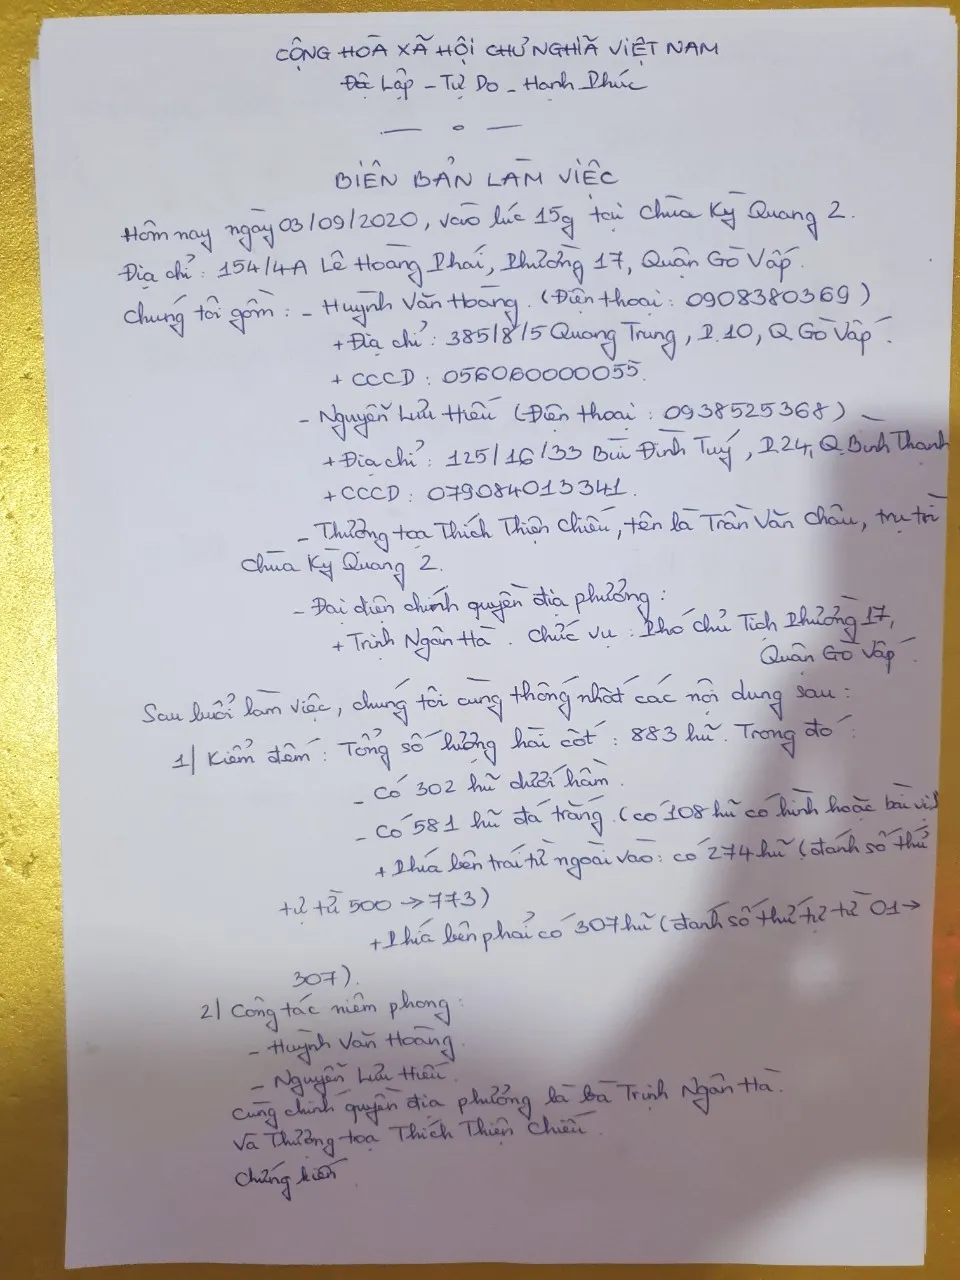 CỘNG HOÀ XÃ HỘI CHỦ NGHĨA VIỆT NAM
Độc Lập - Tự Do - Hạnh Phúc
BIÊN BẢN LÀM VIỆC
Hôm nay ngày 03/09/2020, vào lúc 15g tại Chùa Kỳ Quang 2.
Địa chỉ: 154/4A Lê Hoàng Phái, Phường 17, Quận Gò Vấp.
Chúng tôi gồm: - Huỳnh Văn Hoàng. (Điện thoại: 0908380369)
+ Địa chỉ: 385/8/5 Quang Trung, P.10, Q Gò Vấp.
+ CCCD: 056060000055.
- Nguyễn Lưu Hiếu (Điện thoại: 0938525368)
+ Địa chỉ: 125/16/33 Bùi Đình Tuý, P.24, Q. Bình Thanh
+ CCCD: 079084013341.
- Thượng toạ Thích Thiện Chiếu, tên là Trần Văn Châu, trụ trì
chùa Kỳ Quang 2.
- Đại diện chính quyền địa phương:
+ Trịnh Ngân Hà. Chức vụ: Phó chủ Tịch Phường 17,
Quận Gò Vấp.
Sau buổi làm việc, chúng tôi cùng thống nhất các nội dung sau:
1/ Kiểm đếm: Tổng số lượng hài cốt: 883 hũ. Trong đó:
- Có 302 hũ dưới hầm.
- Có 581 hũ đá trắng. (có 108 hũ có hình hoặc bài vị)
+ Phía bên trái từ ngoài vào: có 274 hũ (đánh số thứ
tự từ 500 → 773)
+ Phía bên phải có 307 hũ (đánh số thứ tự từ 01 →
307).
2/ Công tác niêm phong:
- Huỳnh Văn Hoàng.
- Nguyễn Lưu Hiếu.
cùng chính quyền địa phương là bà Trịnh Ngân Hà.
và Thượng toạ Thích Thiện Chiếu.
Chứng kiến